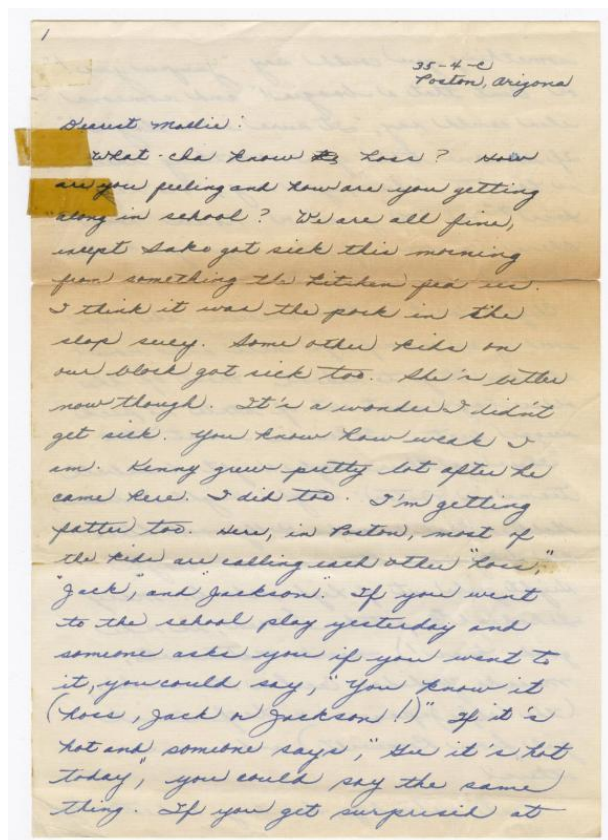 1
35-4-C
Poston, Arizona
Dearest Mollie:
What-cha know hoss? How
are you feeling and how are you getting
along in school? We are all fine,
except Sako got sick this morning
from something the kitchen fed us.
I think it was the pork in the
slop suey. Some other kids on
our block got sick too. She's better
now though. It's a wonder I didn't
get sick. You know how weak I
am. Kenny grew pretty lot after he
came here. I did too. I'm getting
fatter too. Here, in Poston, most of
the kids are calling each other "hoss,"
"Jack", and "Jackson". If you went
to the school play yesterday and
someone asks you if you went to
it, you could say, "You know it
(hoss, Jack or Jackson!)" If it's
hot and someone says, "Gee it's hot
today", you could say the same
thing. If you get surprised at